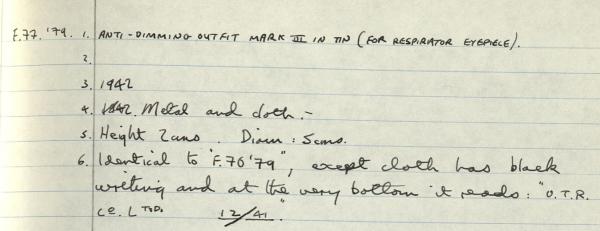 F.77.'79. 1. ANTI-DIMMING OUTFIT MARK III IN TIN (FOR RESPIRATOR EYEPIECE).
2.
3. 1942
4. 1942. Metal and cloth.-
5. Height 2cms. Diam: 5cms.
6. Identical to "F.70'79", except cloth has black
writing and at the very bottom it reads: "U.T.R.
Ce. LTD. 12/41".